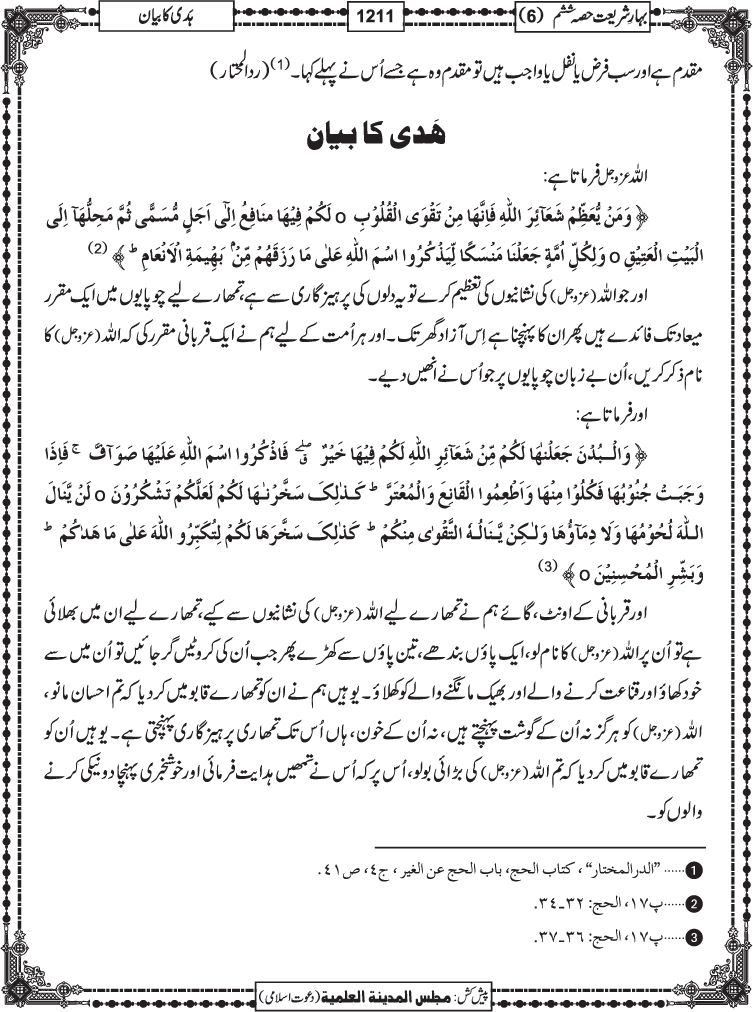 بہارِشریعت حصہ ششم (6)
1211
ہَدی کا بیان
مقدم ہے اور سب فرض یا نفل یا واجب ہیں تو مقدم وہ ہے جسے اُس نے پہلے کہا۔ (1) (ردالمحتار)
هَدی کا بیان
اللہ عزوجل فرماتا ہے:
﴿ وَمَنْ يُّعَظِّمْ شَعَآئِرَ اللّٰهِ فَاِنَّهَا مِنْ تَقْوَى الْقُلُوْبِ o لَكُمْ فِيْهَا مَنَافِعُ اِلٰٓى اَجَلٍ مُّسَمًّى ثُمَّ مَحِلُّهَآ اِلَى
الْبَيْتِ الْعَتِيْقِ o وَلِكُلِّ اُمَّةٍ جَعَلْنَا مَنْسَكًا لِّيَذْكُرُوا اسْمَ اللّٰهِ عَلٰى مَا رَزَقَهُمْ مِّنْۢ بَهِيْمَةِ الْاَنْعَامِ ؕ ﴾ (2)
اور جو اللہ (عزوجل) کی نشانیوں کی تعظیم کرے تو یہ دلوں کی پرہیزگاری سے ہے، تمھارے لیے چوپایوں میں ایک مقرر
میعاد تک فائدے ہیں پھر ان کا پہنچنا ہے اِس آزاد گھر تک۔ اور ہر اُمت کے لیے ہم نے ایک قربانی مقرر کی کہ اللہ (عزوجل) کا
نام ذکر کریں، اُن بے زبان چوپایوں پر جو اُس نے انھیں دیے۔
اور فرماتا ہے:
﴿ وَالْبُدْنَ جَعَلْنٰهَا لَكُمْ مِّنْ شَعَآئِرِ اللّٰهِ لَكُمْ فِيْهَا خَيْرٌ ۖۗ فَاذْكُرُوا اسْمَ اللّٰهِ عَلَيْهَا صَوَآفَّ ۚ فَاِذَا
وَجَبَتْ جُنُوْبُهَا فَكُلُوْا مِنْهَا وَاَطْعِمُوا الْقَانِعَ وَالْمُعْتَرَّ ؕ كَذٰلِكَ سَخَّرْنٰهَا لَكُمْ لَعَلَّكُمْ تَشْكُرُوْنَ o لَنْ يَّنَالَ
اللّٰهَ لُحُوْمُهَا وَلَا دِمَآؤُهَا وَلٰكِنْ يَّنَالُهُ التَّقْوٰى مِنْكُمْ ؕ كَذٰلِكَ سَخَّرَهَا لَكُمْ لِتُكَبِّرُوا اللّٰهَ عَلٰى مَا هَدٰىكُمْ ؕ
وَبَشِّرِ الْمُحْسِنِيْنَ o ﴾ (3)
اور قربانی کے اونٹ، گائے ہم نے تمھارے لیے اللہ (عزوجل) کی نشانیوں سے کیے، تمھارے لیے ان میں بھلائی
ہے تو اُن پر اللہ (عزوجل) کا نام لو، ایک پاؤں بندھے، تین پاؤں سے کھڑے پھر جب اُن کی کروٹیں گر جائیں تو اُن میں سے
خود کھاؤ اور قناعت کرنے والے اور بھیک مانگنے والے کو کھلاؤ۔ یوہیں ہم نے ان کو تمھارے قابو میں کردیا کہ تم احسان مانو،
اللہ (عزوجل) کو ہرگز نہ اُن کے گوشت پہنچتے ہیں، نہ اُن کے خون، ہاں اُس تک تمھاری پرہیزگاری پہنچتی ہے۔ یوہیں اُن کو
تمھارے قابو میں کردیا کہ تم اللہ (عزوجل) کی بڑائی بولو، اُس پر کہ اُس نے تمھیں ہدایت فرمائی اور خوشخبری پہنچا دو نیکی کرنے
والوں کو۔
1 ......"الدرالمختار"، کتاب الحج، باب الحج عن الغیر، ج٤، ص٤١.
2 ......پ۱۷، الحج: ۳۲۔۳٤.
3 ......پ۱۷، الحج: ۳٦۔۳۷.
پیش کش: مجلس المدینة العلمیة (دعوت اسلامی)